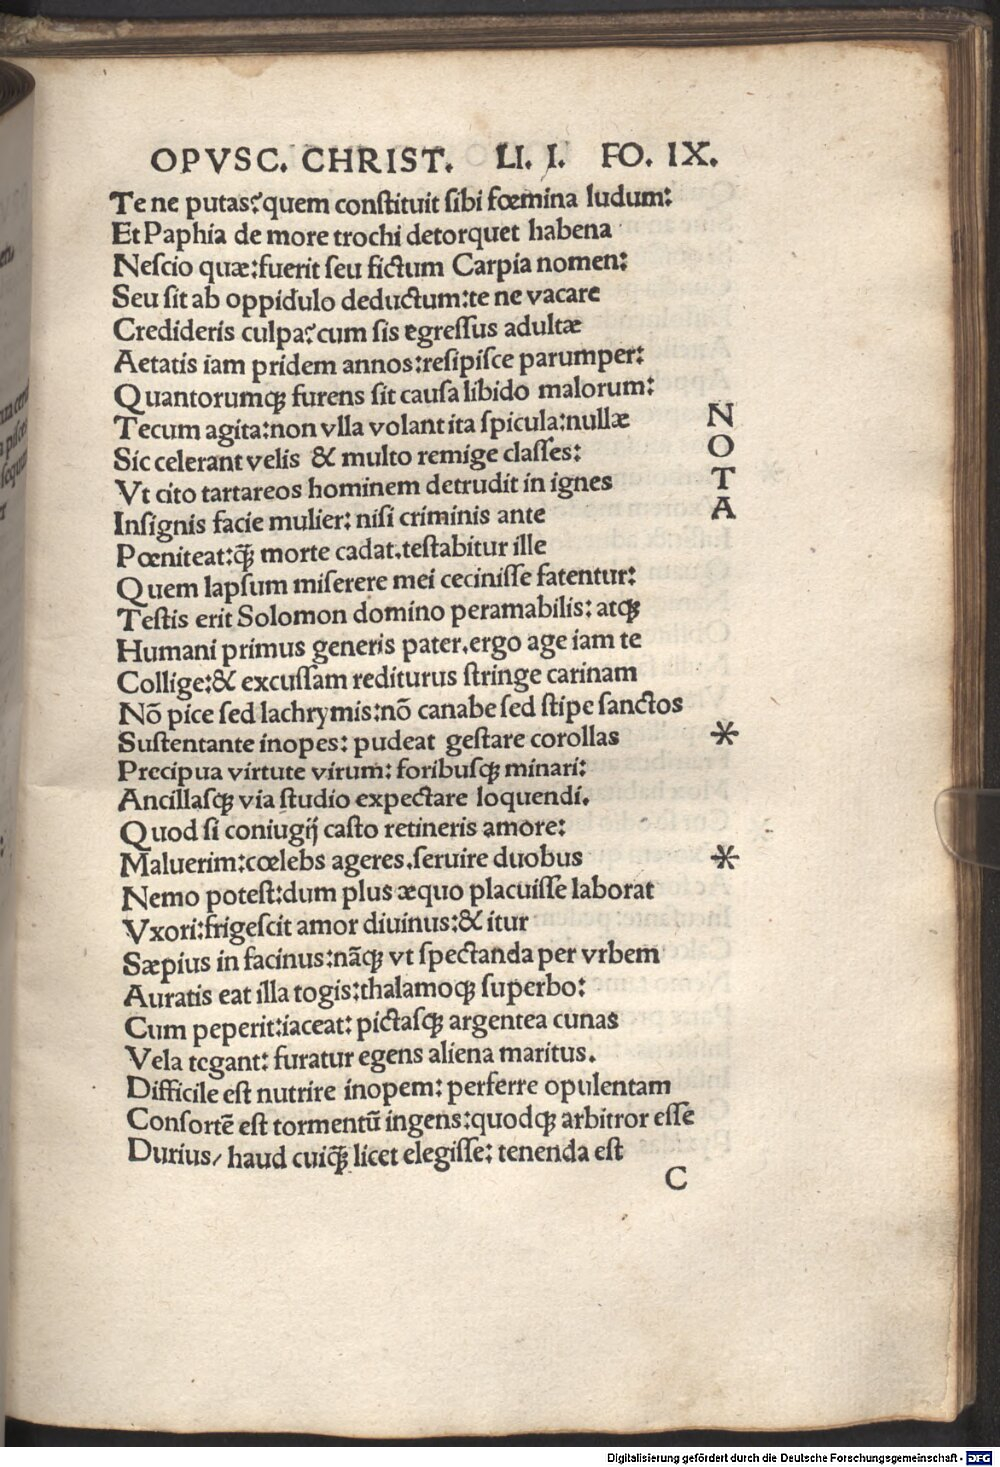 OPVSC. CHRIST. LI. I. FO. IX.
Te ne putas?quem conſtituit ſibi fœmina ludum:
Et Paphia de more trochi detorquet habena
Neſcio quæ:fuerit ſeu fictum Carpia nomen:
Seu ſit ab oppidulo deductum:te ne vacare
Credideris culpa?cum ſis egreſſus adultæ
Aetatis iam pridem annos:reſipiſce parumper:
Quantorumqꝫ furens ſit cauſa libido malorum:
Tecum agita:non vlla volant ita ſpicula:nullæ
Sic celerant velis & multo remige claſſes:
Vt cito tartareos hominem detrudit in ignes
Inſignis facie mulier: niſi criminis ante
Pœniteat:q̃ꝫ morte cadat.teſtabitur ille
Quem lapſum miſerere mei ceciniſſe fatentur:
Teſtis erit Solomon domino peramabilis: atqꝫ
Humani primus generis pater.ergo age iam te
Collige:& excuſſam rediturus ſtringe carinam
Nõ pice ſed lachrymis:nõ canabe ſed ſtipe ſanctos
Suſtentante inopes: pudeat geſtare corollas
Precipua virtute virum: foribuſqꝫ minari:
Ancillaſqꝫ via ſtudio expectare loquendi.
Quod ſi coniugij caſto retineris amore:
Maluerim:cœlebs ageres.ſeruire duobus
Nemo poteſt:dum plus æquo placuiſſe laborat
Vxori:frigeſcit amor diuinus:& itur
Sæpius in facinus:nãqꝫ vt ſpectanda per vrbem
Auratis eat illa togis:thalamoqꝫ ſuperbo:
Cum peperit:iaceat: pictaſqꝫ argentea cunas
Vela tegant: furatur egens aliena maritus.
Difficile eſt nutrire inopem: perferre opulentam
Conſortẽ eſt tormentũ ingens:quodqꝫ arbitror eſſe
Durius/ haud cuiq̃ꝫ licet elegiſſe: tenenda eſt
C
N
O
T
A
*
*
Digitalisierung gefördert durch die Deutsche Forschungsgemeinschaft - DFG